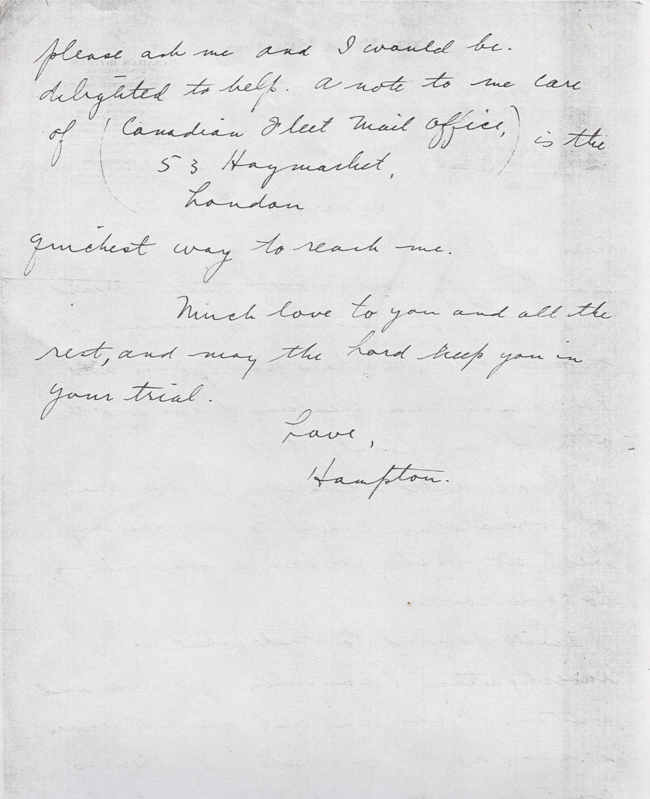 please ask me and I would be.
delighted to help. A note to me care
of (Canadian Fleet Mail Office,) is the
53 Haymarket,
London
quickest way to reach me.
Much love to you and all the
rest, and may the Lord keep you in
your trial.
Love,
Hampton.